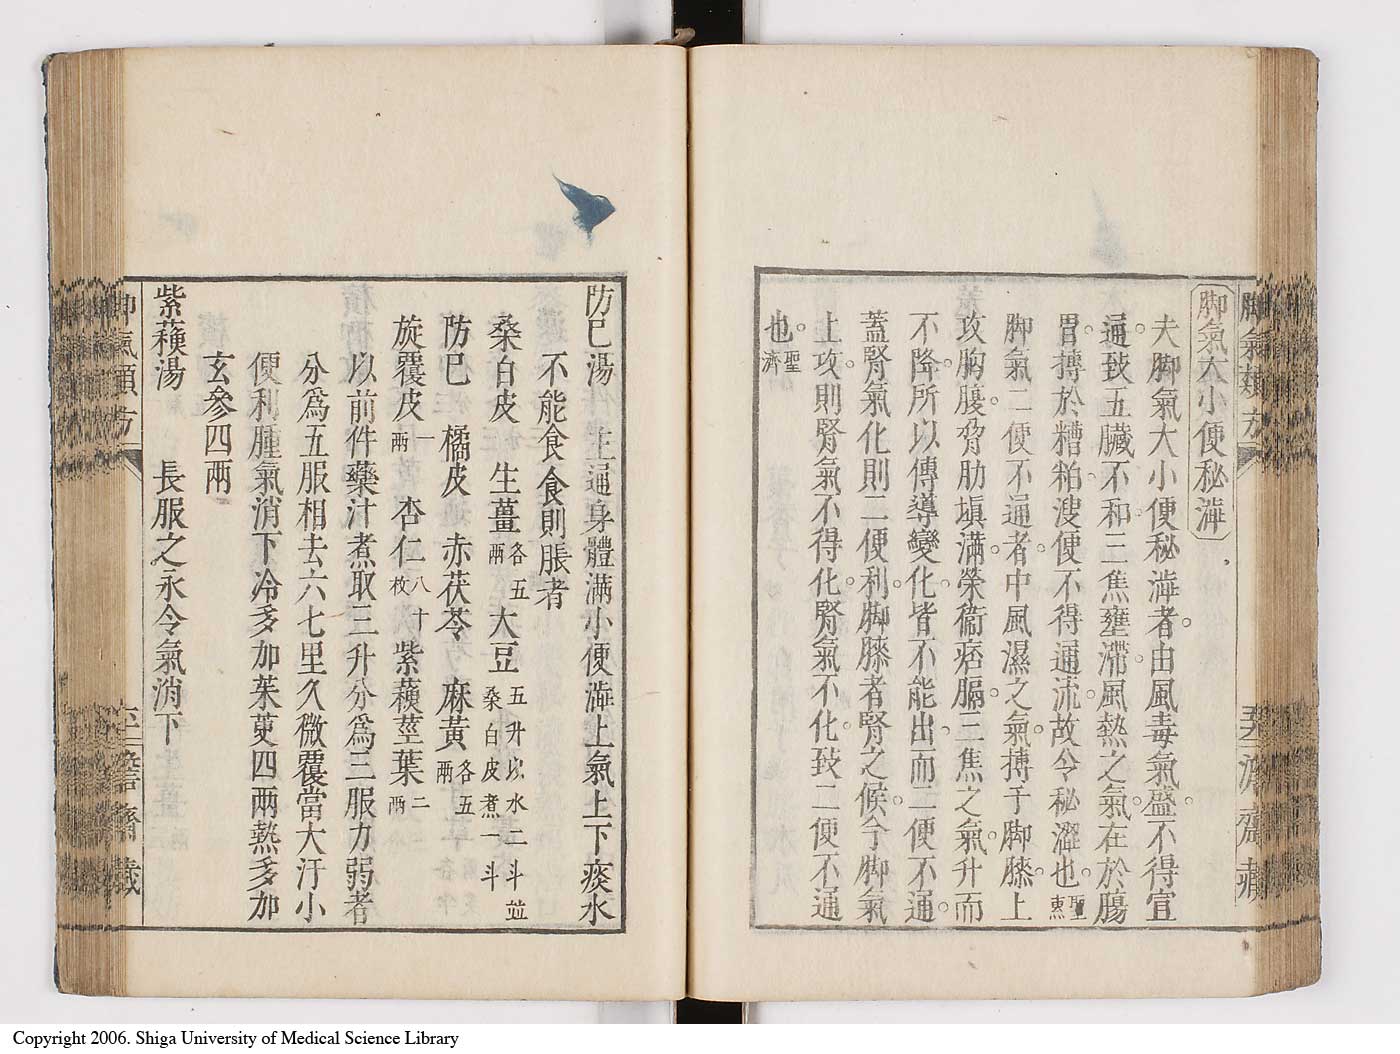 脚氣大小便秘澁
夫脚氣大小便秘澁者由風毒氣盛不得宣
通致五臟不和三焦壅滯風熱之氣在於腸
胃搏於糟粕溲便不得通流故令秘澀也聖惠
脚氣二便不通者中風濕之氣搏于脚膝上
攻胸腹脅肋塡滿榮衞痞膈三焦之氣升而
不降所以傳導變化皆不能出而二便不通
蓋腎氣化則二便利脚膝者腎之候今脚氣
上攻則腎氣不得化腎氣不化致二便不通
也聖濟
脚氣類方
防已湯 主通身體滿小便澁上氣上下痰水
不能食食則脹者
桑白皮 生薑各五兩 大豆五升以水二斗並桑白皮煮一斗
防已 橘皮 赤茯苓 麻黃各五兩
旋覆皮一兩 杏仁八十枚 紫蘓莖葉二兩
以前件藥汁煮取三升分爲三服力弱者
分爲五服相去六七里久微覆當大汗小
便利腫氣消下冷多加茱萸四兩熱多加
玄參四兩
紫蘓湯 長服之永令氣消下
脚氣類方